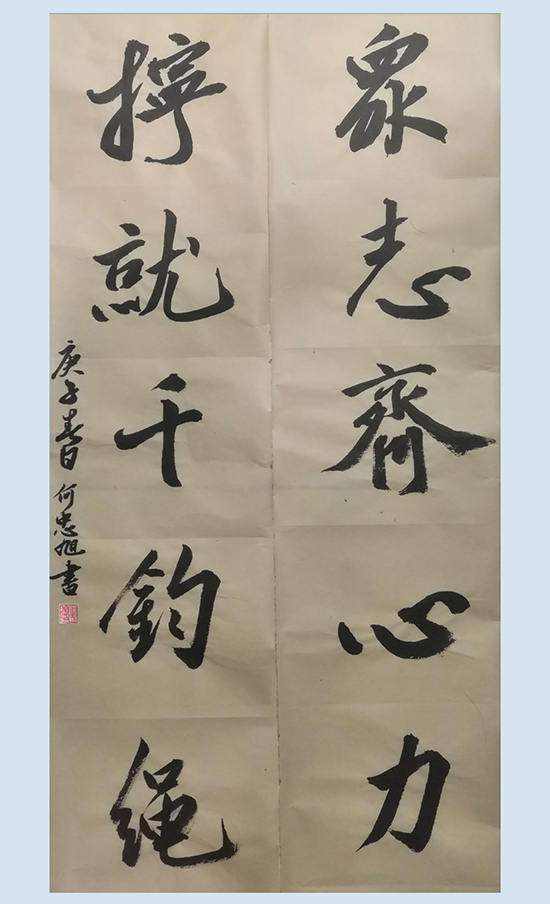 眾志齊心力
擰就千鈞繩
庚子春日 何忠旭書